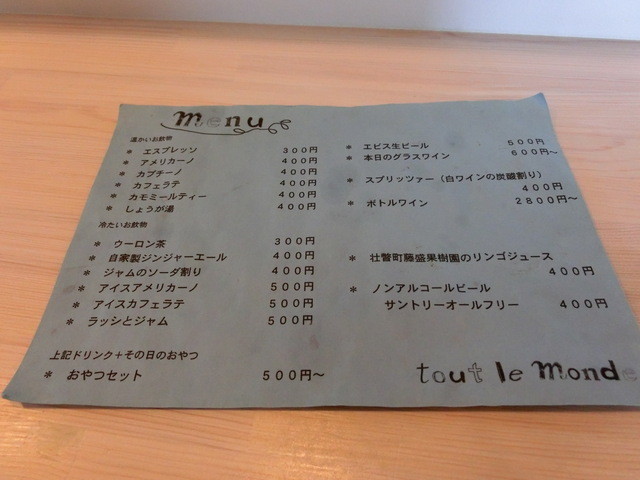 menu
温かいお飲物
＊ エスプレッソ 300円
＊ アメリカーノ 400円
＊ カプチーノ 400円
＊ カフェラテ 400円
＊ カモミールティー 400円
＊ しょうが湯 400円
冷たいお飲物
＊ ウーロン茶 300円
＊ 自家製ジンジャーエール 400円
＊ ジャムのソーダ割り 400円
＊ アイスアメリカーノ 500円
＊ アイスカフェラテ 500円
＊ ラッシとジャム 500円
上記ドリンク＋その日のおやつ
＊ おやつセット 500円〜
＊ エビス生ビール 500円
＊ 本日のグラスワイン 600円〜
＊ スプリッツァー（白ワインの炭酸割り）
400円
＊ ボトルワイン 2800円〜
＊ 壮瞥町藤盛果樹園のリンゴジュース
400円
＊ ノンアルコールビール
サントリーオールフリー 400円
tout le monde